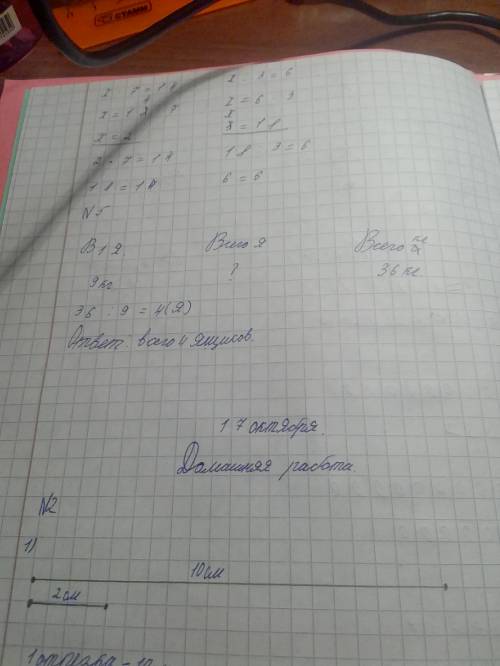 СТАММ
x · 7 = 14
x : 3 = 6
x = 14 : 7
x = 6 · 3
x = 2
x = 18
2 · 7 = 14
18 : 3 = 6
14 = 14
6 = 6
N5
В 1 я
Всего я
Всего кг
9 кг
?
36 кг
36 : 9 = 4 (я)
Ответ: всего 4 ящиков.
17 октября.
Домашняя работа.
N2
1)
10 см
2 см
1 отрезка - 10